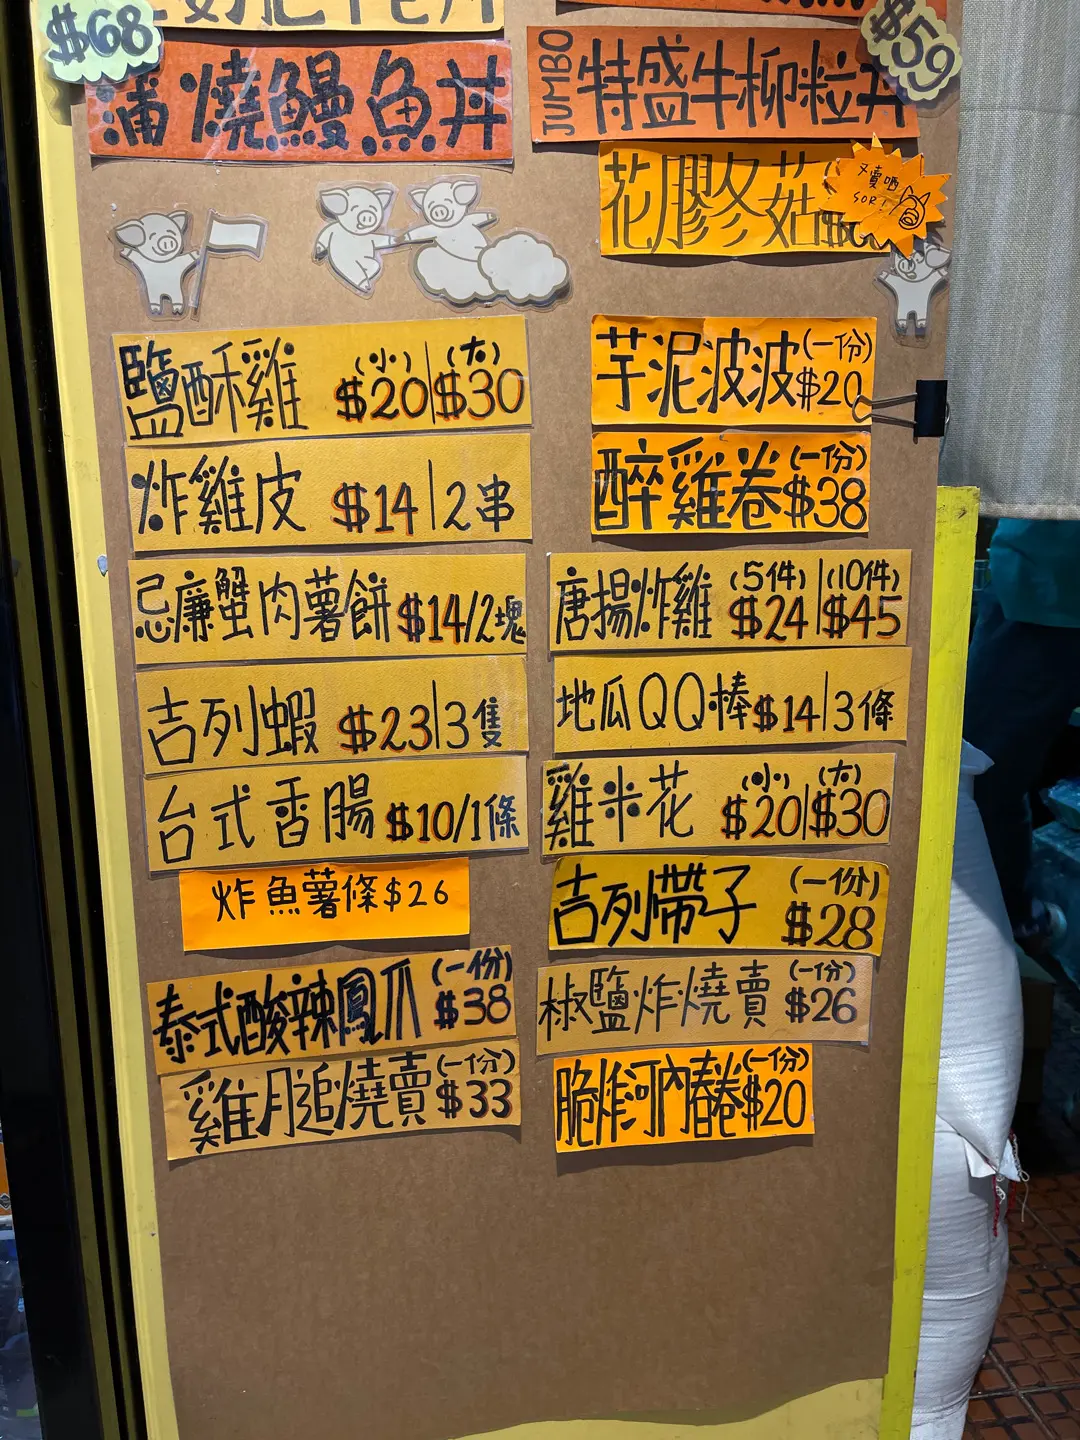 $68
蒲燒鰻魚丼
鹽酥雞 (小) $20|(大) $30
炸雞皮 $14|2串
忌廉蟹肉薯餅 $14/2塊
吉列蝦 $23|3隻
台式香腸 $10/1條
炸魚薯條$26
泰式酸辣鳳爪 (一份) $38
雞月追燒賣 (一份) $33
$59
JUMBO 特盛牛柳粒丼
花膠冬菇
又賣哂
SOR!
芋泥波波 (一份) $20
醉雞卷 (一份) $38
唐揚炸雞 (5件) $24|(10件) $45
地瓜QQ棒 $14|3條
雞米花 (小) $20|(大) $30
吉列帶子 (一份) $28
椒鹽炸燒賣 (一份) $26
脆炸河內春卷 (一份) $20